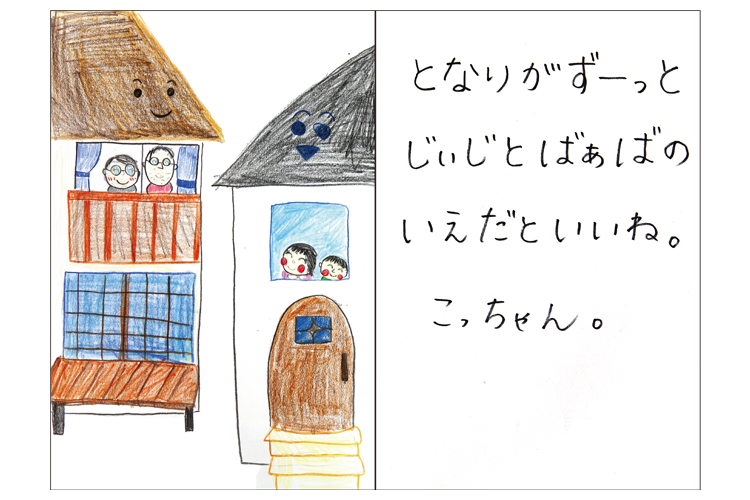 となりがずーっと
じぃじとばぁばの
いえだといいね。
こっちゃん。